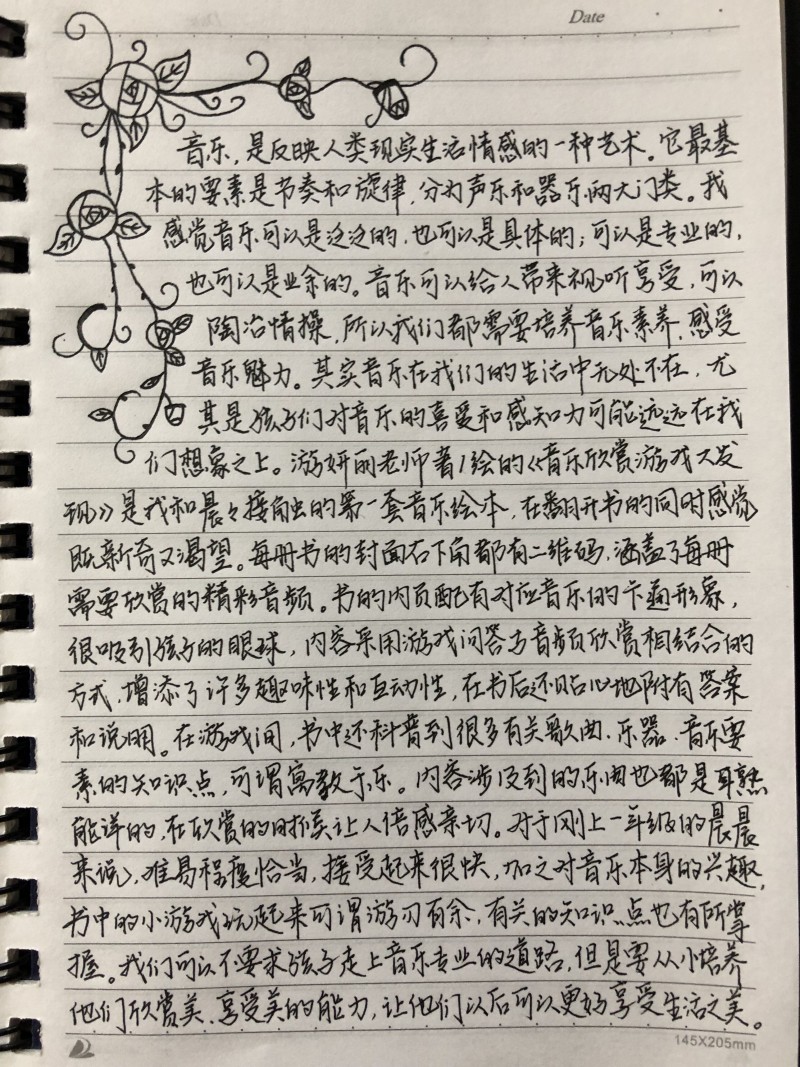 Date
音乐,是反映人类现实生活情感的一种艺术。它最基
本的要素是节奏和旋律,分为声乐和器乐两大门类。我
感觉音乐可以是泛泛的,也可以是具体的;可以是专业的,
也可以是业余的。音乐可以给人带来视听享受,可以
陶冶情操,所以我们都需要培养音乐素养,感受
音乐魅力。其实音乐在我们的生活中无处不在,尤
其是孩子们对音乐的喜爱和感知力可能远远在我
们想象之上。游妍丽老师著/绘的《音乐欣赏游戏大发
现》是我和晨々接触的第一套音乐绘本,在翻开书的同时感觉
既新奇又渴望。每册书的封面右下角都有二维码,涵盖了每册
需要欣赏的精彩音频。书的内页配有对应音乐的卡通形象,
很吸引孩子的眼球,内容采用游戏问答与音频欣赏相结合的
方式,增添了许多趣味性和互动性,在书后还贴心地附有答案
和说明。在游戏间,书中还科普到很多有关歌曲、乐器、音乐要
素的知识点,可谓寓教于乐。内容涉及到的乐曲也都是耳熟
能详的,在欣赏的时候让人倍感亲切。对于刚上一年级的晨晨
来说,难易程度恰当,接受起来很快,加之对音乐本身的兴趣,
书中的小游戏玩起来可谓游刃有余,有关的知识点也有所掌
握。我们可以不要求孩子走上音乐专业的道路,但是要从小培养
他们欣赏美、享受美的能力,让他们以后可以更好享受生活之美。
145X205mm